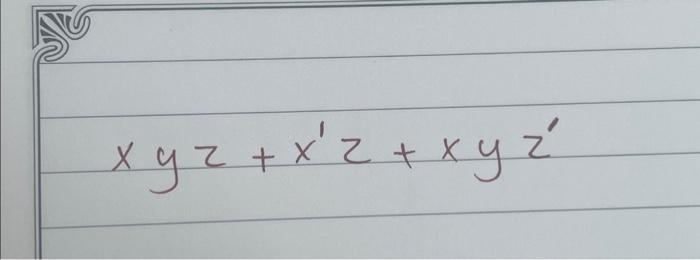 xyz + x'z + xyz'